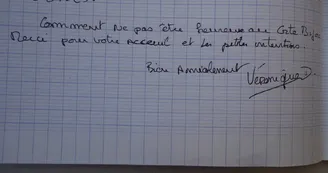 Comment ne pas être heureux au Gite Bijou
Merci pour votre accueil et les petites intentions.
Bien Amicalement
Véronique